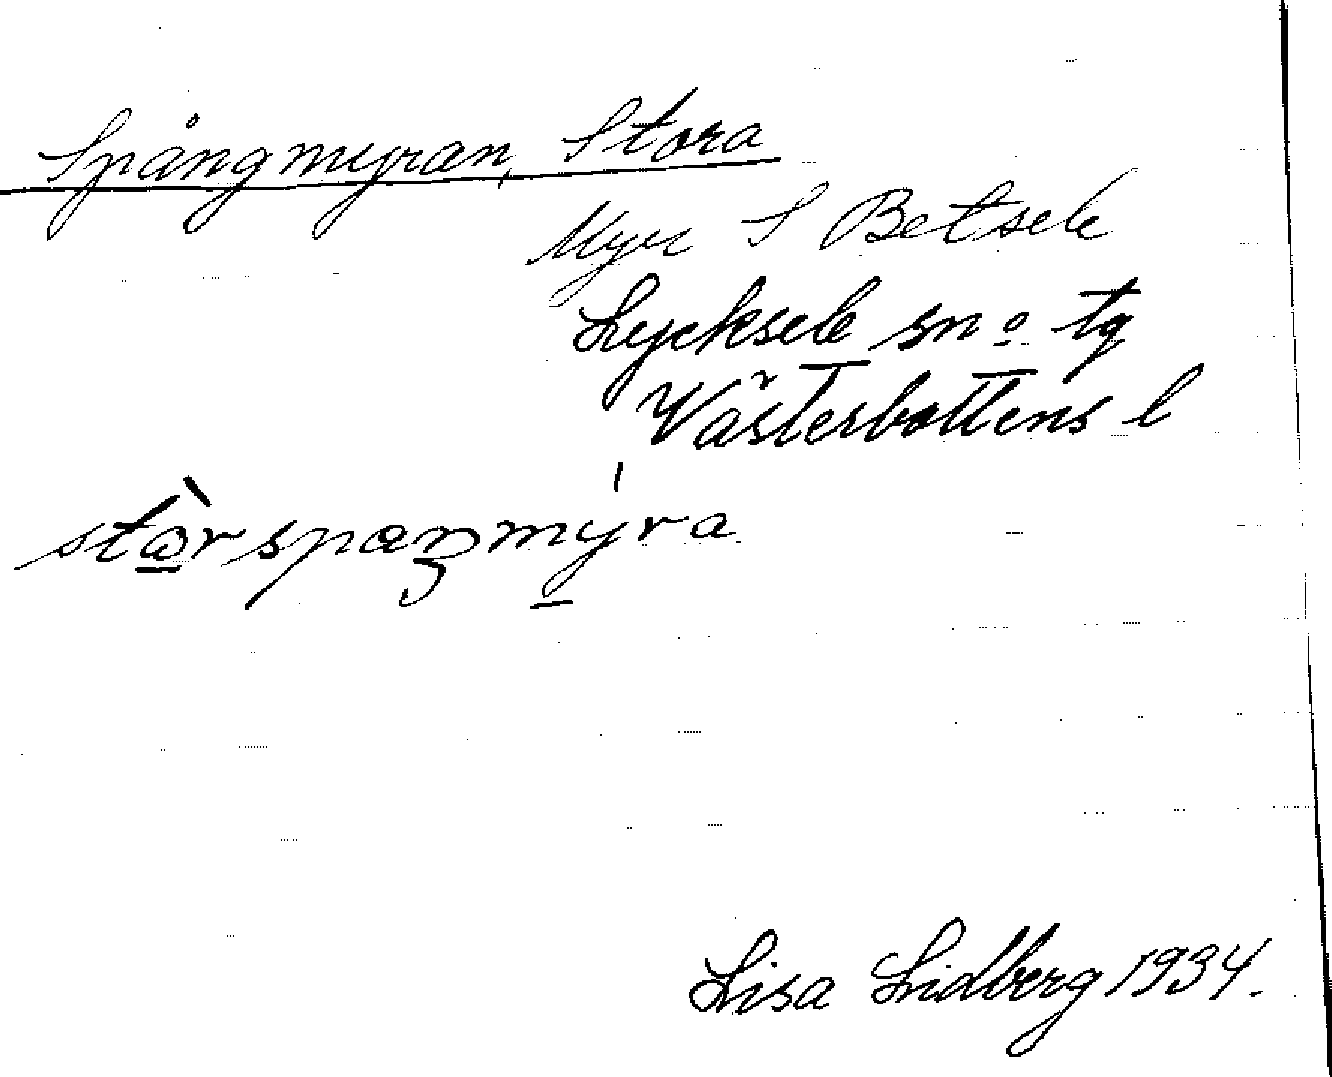 Spångmyran, Stora
Myr S Betsele
Lycksele sn o tg
Västerbottens l
stårspaŋmýra
Lisa Lidberg 1934.